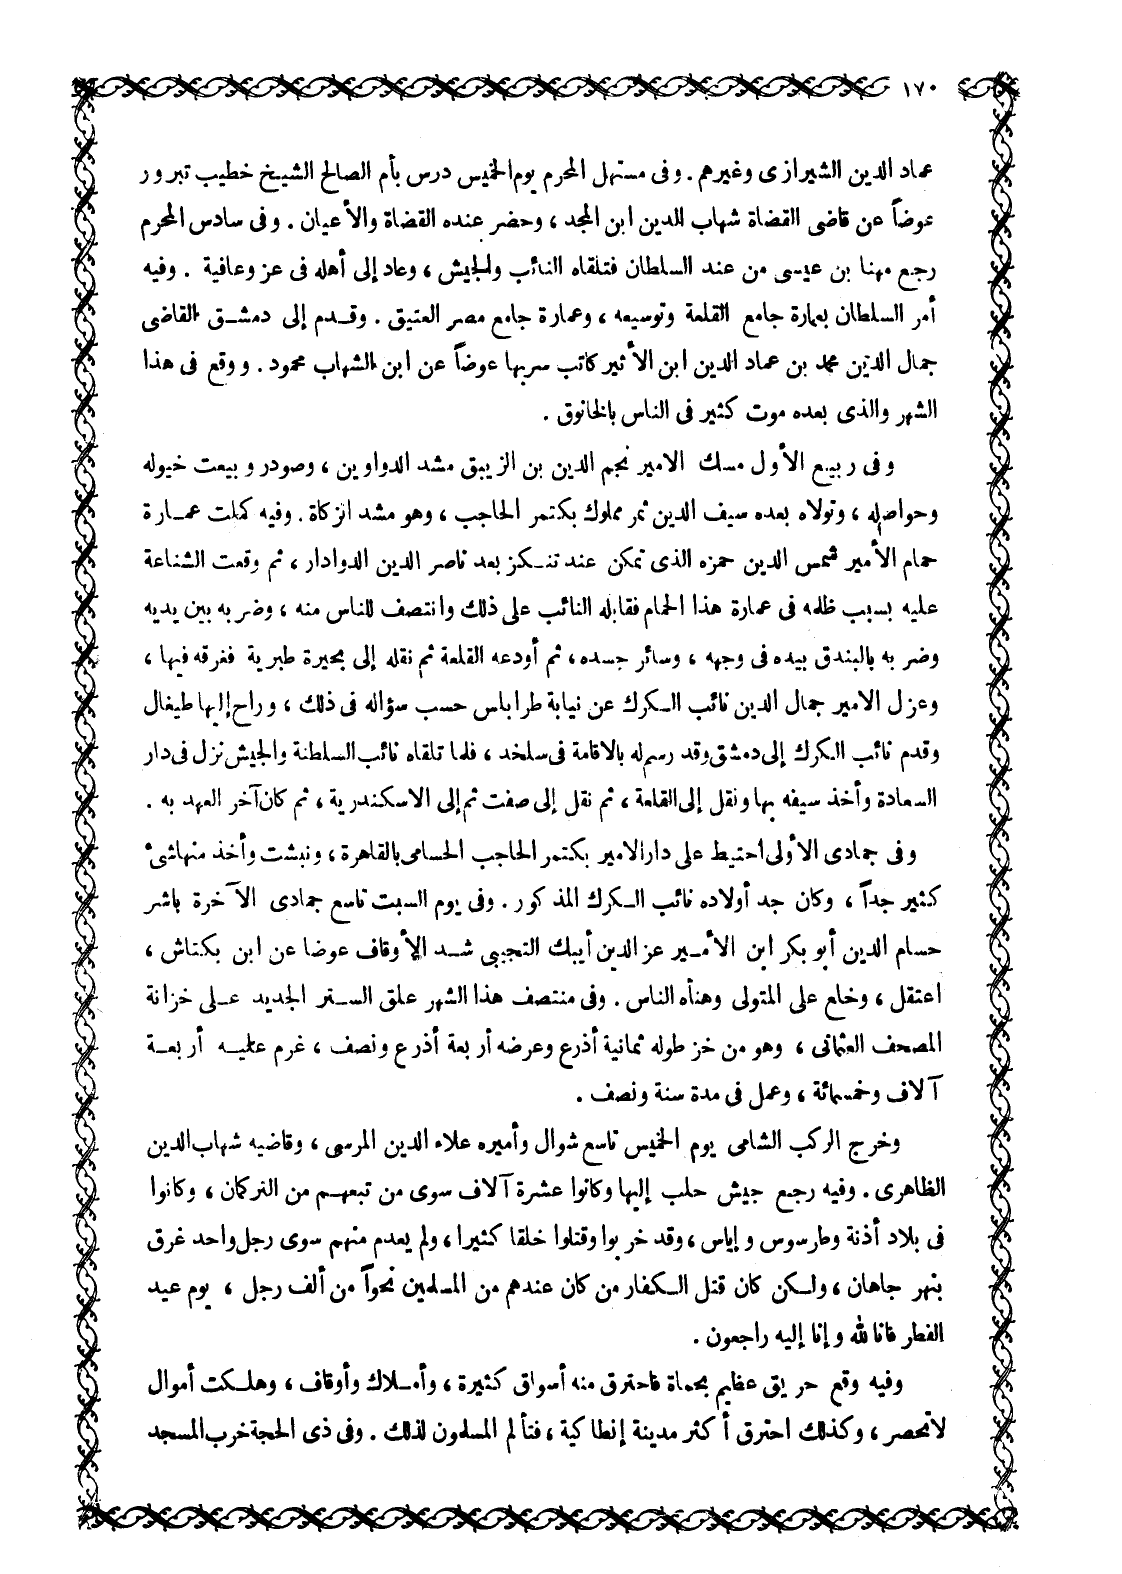 ١٧٠
عماد الدين الشيرازى وغيرهم . وفى مستهل المحرم يوم الخميس درس بأم الصالح الشيخ خطيب تبرور
عوضاً عن قاضى القضاة شهاب الدين ابن المجد ، وحضر عنده القضاة والأعيان . وفى سادس المحرم
رجع مهنا بن عيسى من عند السلطان فتلقاه النائب والجيش ، وعاد إلى أهله فى عز وعافية . وفيه
أمر السلطان بعمارة جامع القلعة وتوسيعه ، وعمارة جامع مصر العتيق . وقدم إلى دمشق القاضى
جمال الدين محمد بن عماد الدين ابن الأثير كاتب سر بها عوضاً عن ابن الشهاب محمود . ووقع فى هذا
الشهر والذى بعده موت كثير فى الناس بالخانوق .
وفى ربيع الأول مسك الامير نجم الدين بن الزيبق مشد الدواوين ، وصودر وبيعت خيوله
وحواصله ، وتولاه بعده سيف الدين تمر مملوك بكتمر الحاجب ، وهو مشد الزكاة . وفيه كملت عمارة
حمام الأمير شمس الدين حمزه الذى تمكن عند تنكز بعد ناصر الدين الدوادار ، ثم وقعت الشناعة
عليه بسبب ظلمه فى عمارة هذا الحمام فقابله النائب على ذلك وانتصف للناس منه ، وضربه بين يديه
وضربه بالبندق بيده فى وجهه ، وسائر جسده ، ثم أودعه القلعة ثم نقله إلى بحيرة طبرية فغرقه فيها ،
وعزل الامير جمال الدين نائب الكرك عن نيابة طرابلس حسب سؤاله فى ذلك ، وراح إليها طيغال
وقدم نائب الكرك إلى دمشق وقد رسم له بالاقامة فى سلخد ، فلما تلقاه نائب السلطنة والجيش نزل فى دار
السعادة وأخذ سيفه بها ونقل إلى القلعة ، ثم نقل إلى صفت ثم إلى الاسكندرية ، ثم كان آخر العهد به .
وفى جمادى الأولى احتيط على دار الامير بكتمر الحاجب الحسامى بالقاهرة ، ونبشت وأخذ منها شىء
كثير جداً ، وكان جد أولاده نائب الكرك المذكور . وفى يوم السبت تاسع جمادى الآخرة باشر
حسام الدين أبو بكر ابن الأمير عز الدين أيبك النجيبى شد الأوقاف عوضا عن ابن بكتاش ،
اعتقل ، وخلع على المتولى وهنأه الناس . وفى منتصف هذا الشهر علق الستر الجديد على خزانة
المصحف العثمانى ، وهو من خز طوله ثمانية أذرع وعرضه أربعة أذرع ونصف ، غرم عليه أربعة
آلاف وخمسمائة ، وعمل فى مدة سنة ونصف .
وخرج الركب الشامى يوم الخميس تاسع شوال وأميره علاء الدين المرسى ، وقاضيه شهاب الدين
الظاهرى . وفيه رجع جيش حلب إليها وكانوا عشرة آلاف سوى من تبعهم من التركمان ، وكانوا
فى بلاد أذنة وطرسوس وإياس ، وقد خربوا وقتلوا خلقا كثيرا ، ولم يعدم منهم سوى رجل واحد غرق
بنهر جاهان ، ولكن كان قتل الكفار من كان عندهم من المسلمين نحواً من ألف رجل ، يوم عيد
الفطر فانا لله وإنا إليه راجعون .
وفيه وقع حريق عظيم بحماة فاحترق منه أسواق كثيرة ، وأملاك وأوقاف ، وهلكت أموال
لا تحصر ، وكذلك احترق أكثر مدينة إنطاكية ، فتألم المسلمون لذلك . وفى ذى الحجة خرب المسجد